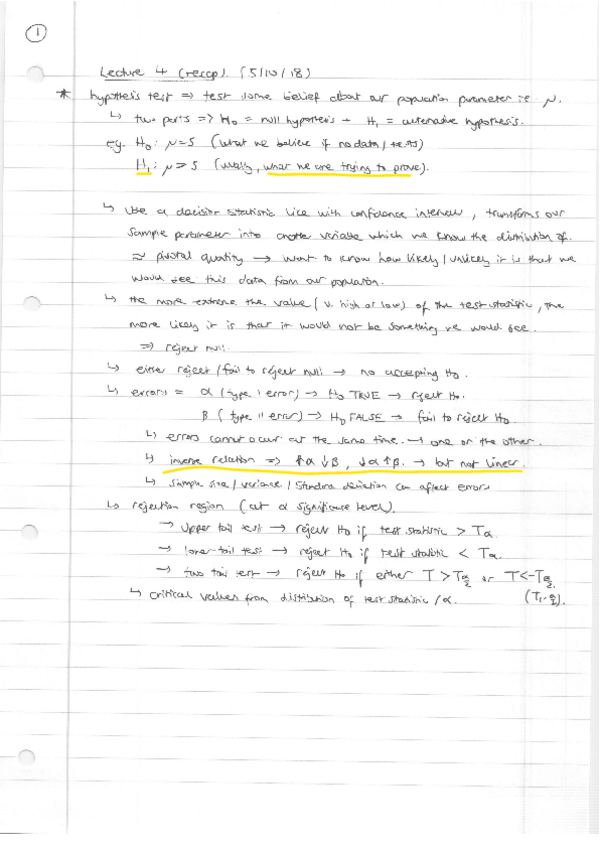 1
Lecture 4 (recap). (5/10/18)
* hypothesis test => test some belief about our population parameter i.e. μ.
↳ two parts => H0 = null hypothesis + H1 = alternative hypothesis.
eg. H0: μ=5 (what we believe if no data/tests)
H1: μ>5 (usually, what we are trying to prove).
↳ Use a decision statistic like with confidence interval, transforms our
sample parameter into another variable which we know the distribution of.
≈ pivotal quantity → want to know how likely/unlikely it is that we
would see this data from our population.
↳ the more extreme the value (v. high or low) of the test statistic, the
more likely it is that it would not be something we would see.
=> reject null.
↳ either reject/fail to reject null → no accepting H0.
↳ errors = α (type I error) → H0 TRUE → reject H0.
β (type II error) → H0 FALSE → fail to reject H0
↳ errors cannot occur at the same time. → one or the other.
↳ inverse relation => ↑α ↓β, ↓α ↑β. → but not linear.
↳ sample size/variance/standard deviation can affect errors
↳ rejection region (at α significance level).
→ upper tail test → reject H0 if test statistic > Tα.
→ lower tail test → reject H0 if test statistic < Tα.
→ two tail test → reject H0 if either T > Tα/2 or T<-Tα/2.
↳ critical values from distribution of test statistic/α. (T1-α/2).